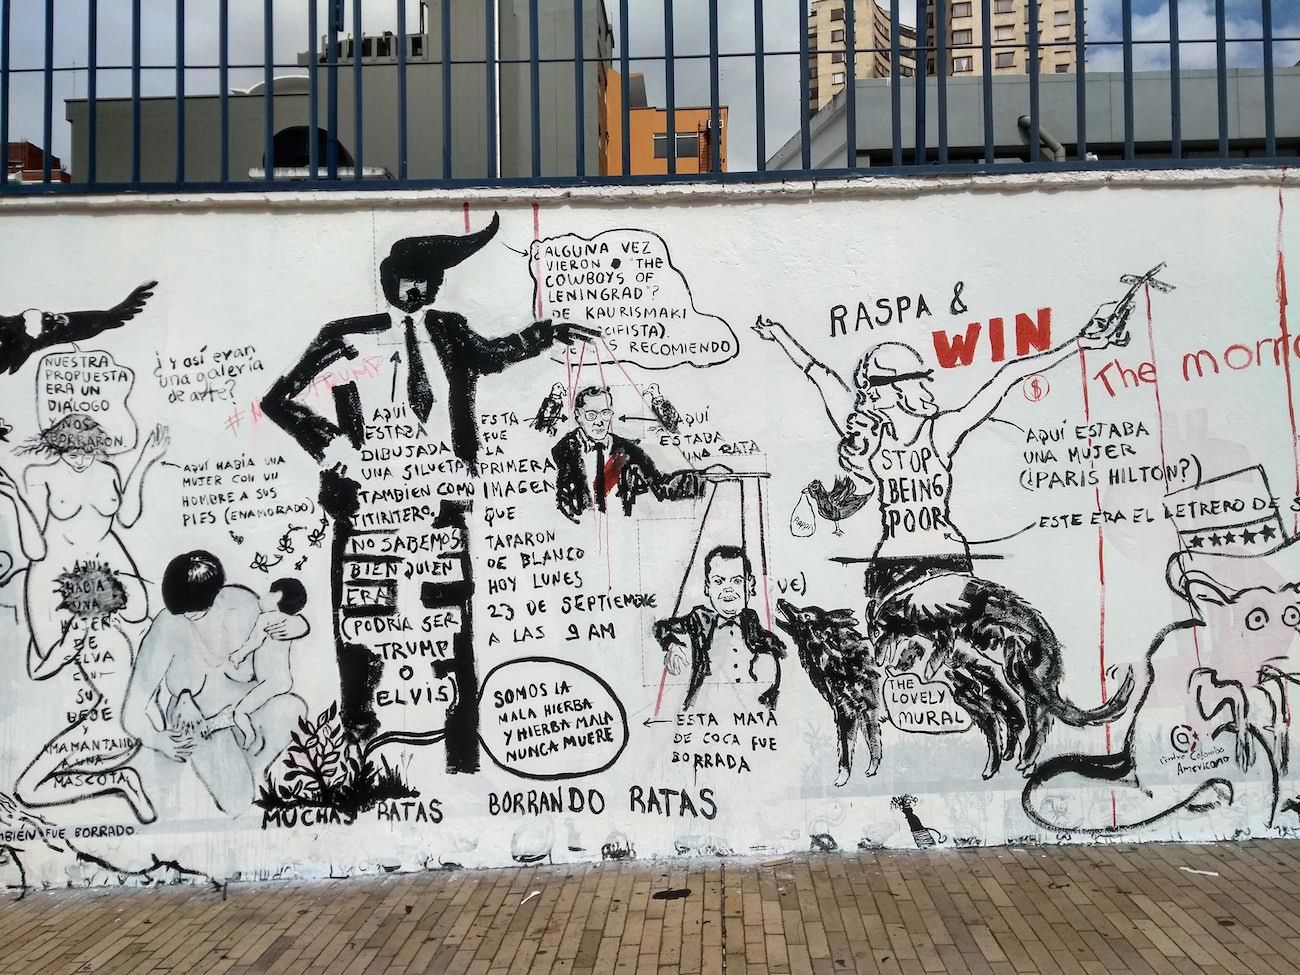 NUESTRA
PROPUESTA
ERA UN
DIÁLOGO
Y NOS
BORRARON
¿y así eran
una galería
de arte?
AQUÍ HABÍA UNA
MUJER CON UN
HOMBRE A SUS
PIES (ENAMORADO)
AQUÍ
HABÍA
UNA
MUJER
DE
SELVA
CON
SU
BEBÉ
Y
AMAMANTANDO
A UNA
MASCOTA
FUE BORRADO
TRUMP
AQUÍ
ESTABA
DIBUJADA
UNA SILUETA
TAMBIEN COMO
TITIRITERO.
NO SABEMOS
BIEN QUIEN
ERA
(PODRÍA SER
TRUMP
O
ELVIS)
¿ALGUNA VEZ
VIERON "THE
COWBOYS OF
LENINGRAD"?
DE KAURISMAKI
RECOMIENDO
ESTA
FUE
LA
PRIMERA
IMAGEN
QUE
TAPARON
DE BLANCO
HOY LUNES
23 DE SEPTIEMBRE
A LAS 9 AM
AQUÍ
ESTABA
UNA RATA
SOMOS LA
MALA HIERBA
Y HIERBA MALA
NUNCA MUERE
ESTA MATA
DE COCA FUE
BORRADA
MUCHAS RATAS BORRANDO RATAS
RASPA &
WIN
$
The
STOP
BEING
POOR
AQUÍ ESTABA
UNA MUJER
(¿PARIS HILTON?)
ESTE ERA EL LETRERO DE S
THE
LOVELY
MURAL
@
Centro Colombo
Americano